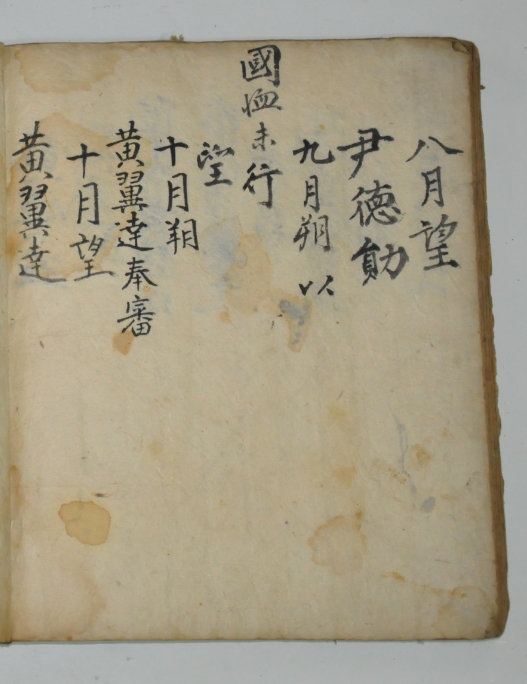 八月望
尹德勛
九月朔 以
國恤未行
望
十月朔
黄翼達奉審
十月望
黄翼達